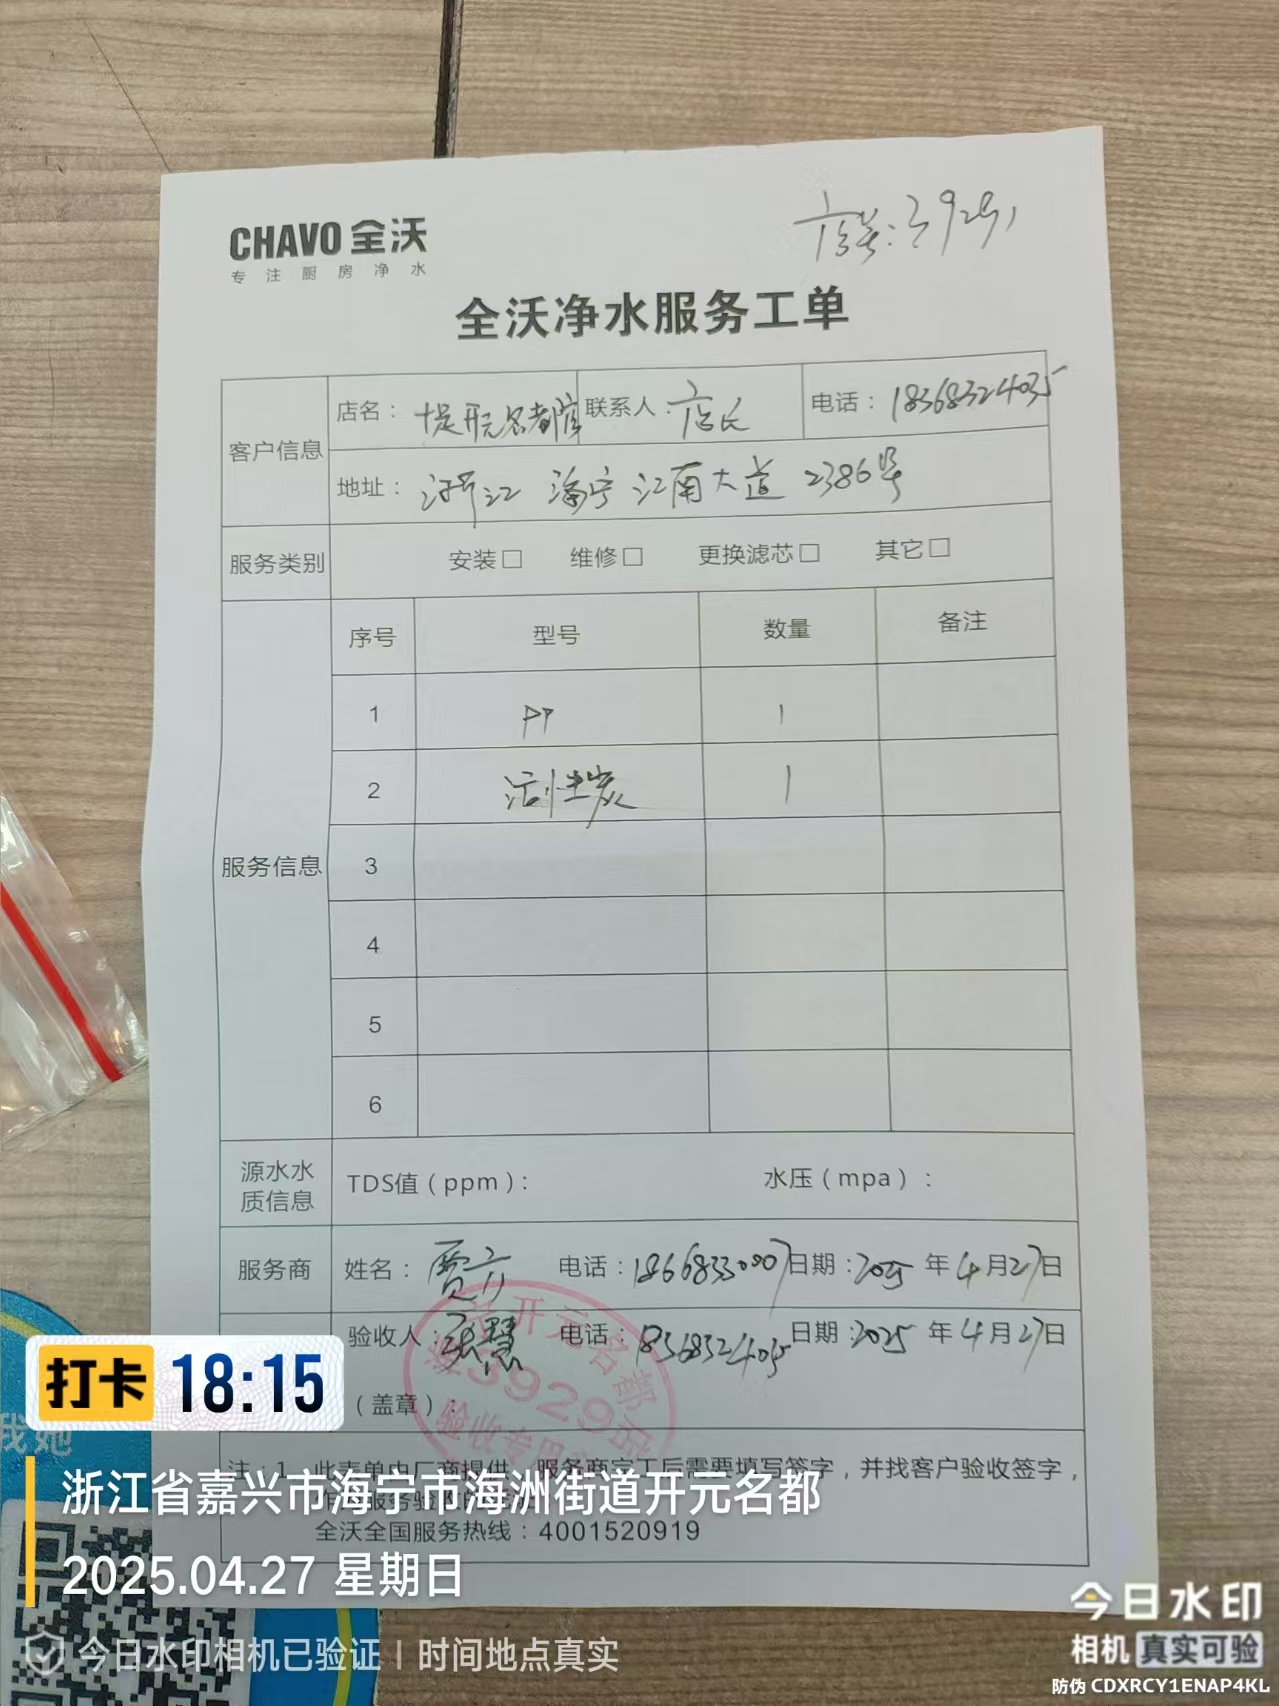 CHAVO 全沃
专注厨房净水
店号:3929
全沃净水服务工单
客户信息
店名: 开元名都店 联系人: 店长 电话: 18368324035
地址: 浙江 海宁 江南大道 2386号
服务类别 安装□ 维修□ 更换滤芯□ 其它□
服务信息
序号 型号 数量 备注
1 PP 1
2 活性炭 1
3
4
5
6
源水水质信息 TDS值(ppm): 水压(mpa):
服务商 姓名: 贾 电话:18668330007 日期:2025年4月27日
验收人: 慧 电话:18368324035 日期:2025年4月27日
(盖章):
开元名都
3929店
验收专用
注:1、此表单由厂商提供,服务商完工后需要填写签字,并找客户验收签字,
服务验
全沃全国服务热线:4001520919
我她
打卡 18:15
浙江省嘉兴市海宁市海洲街道开元名都
2025.04.27 星期日
今日水印相机已验证 | 时间地点真实
今日水印
相机 真实可验
防伪 CDXRCY1ENAP4KL